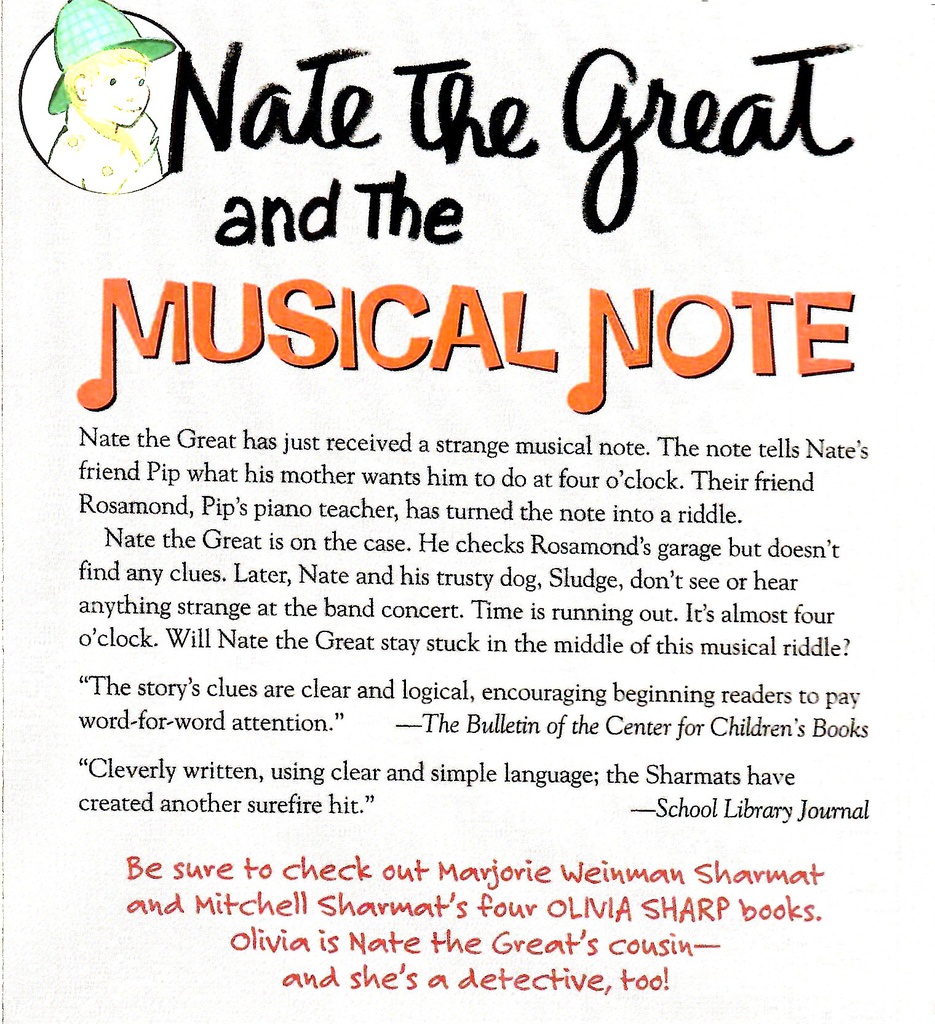 Nate the Great
and The
MUSICAL NOTE
Nate the Great has just received a strange musical note. The note tells Nate's
friend Pip what his mother wants him to do at four o'clock. Their friend
Rosamond, Pip's piano teacher, has turned the note into a riddle.
Nate the Great is on the case. He checks Rosamond's garage but doesn't
find any clues. Later, Nate and his trusty dog, Sludge, don't see or hear
anything strange at the band concert. Time is running out. It's almost four
o'clock. Will Nate the Great stay stuck in the middle of this musical riddle?
"The story's clues are clear and logical, encouraging beginning readers to pay
word-for-word attention." —The Bulletin of the Center for Children's Books
"Cleverly written, using clear and simple language; the Sharmats have
created another surefire hit." —School Library Journal
Be sure to check out Marjorie Weinman Sharmat
and Mitchell Sharmat's four OLIVIA SHARP books.
Olivia is Nate the Great's cousin—
and she's a detective, too!